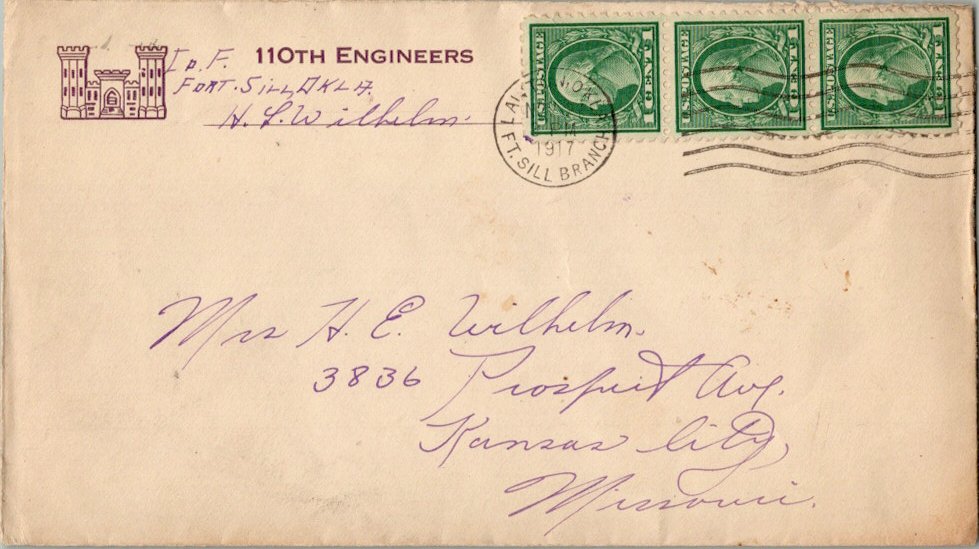 110TH ENGINEERS
Co. F.
FORT. SILL, OKLA.
H. L. Wilhelm.
1917
FT. SILL BRANCH
U.S. POSTAGE 1 CENT 1
U.S. POSTAGE 1 CENT 1
U.S. POSTAGE 1 CENT 1
Mrs H. E. Wilhelm.
3836 Prospect Ave.
Kansas City,
Missouri.